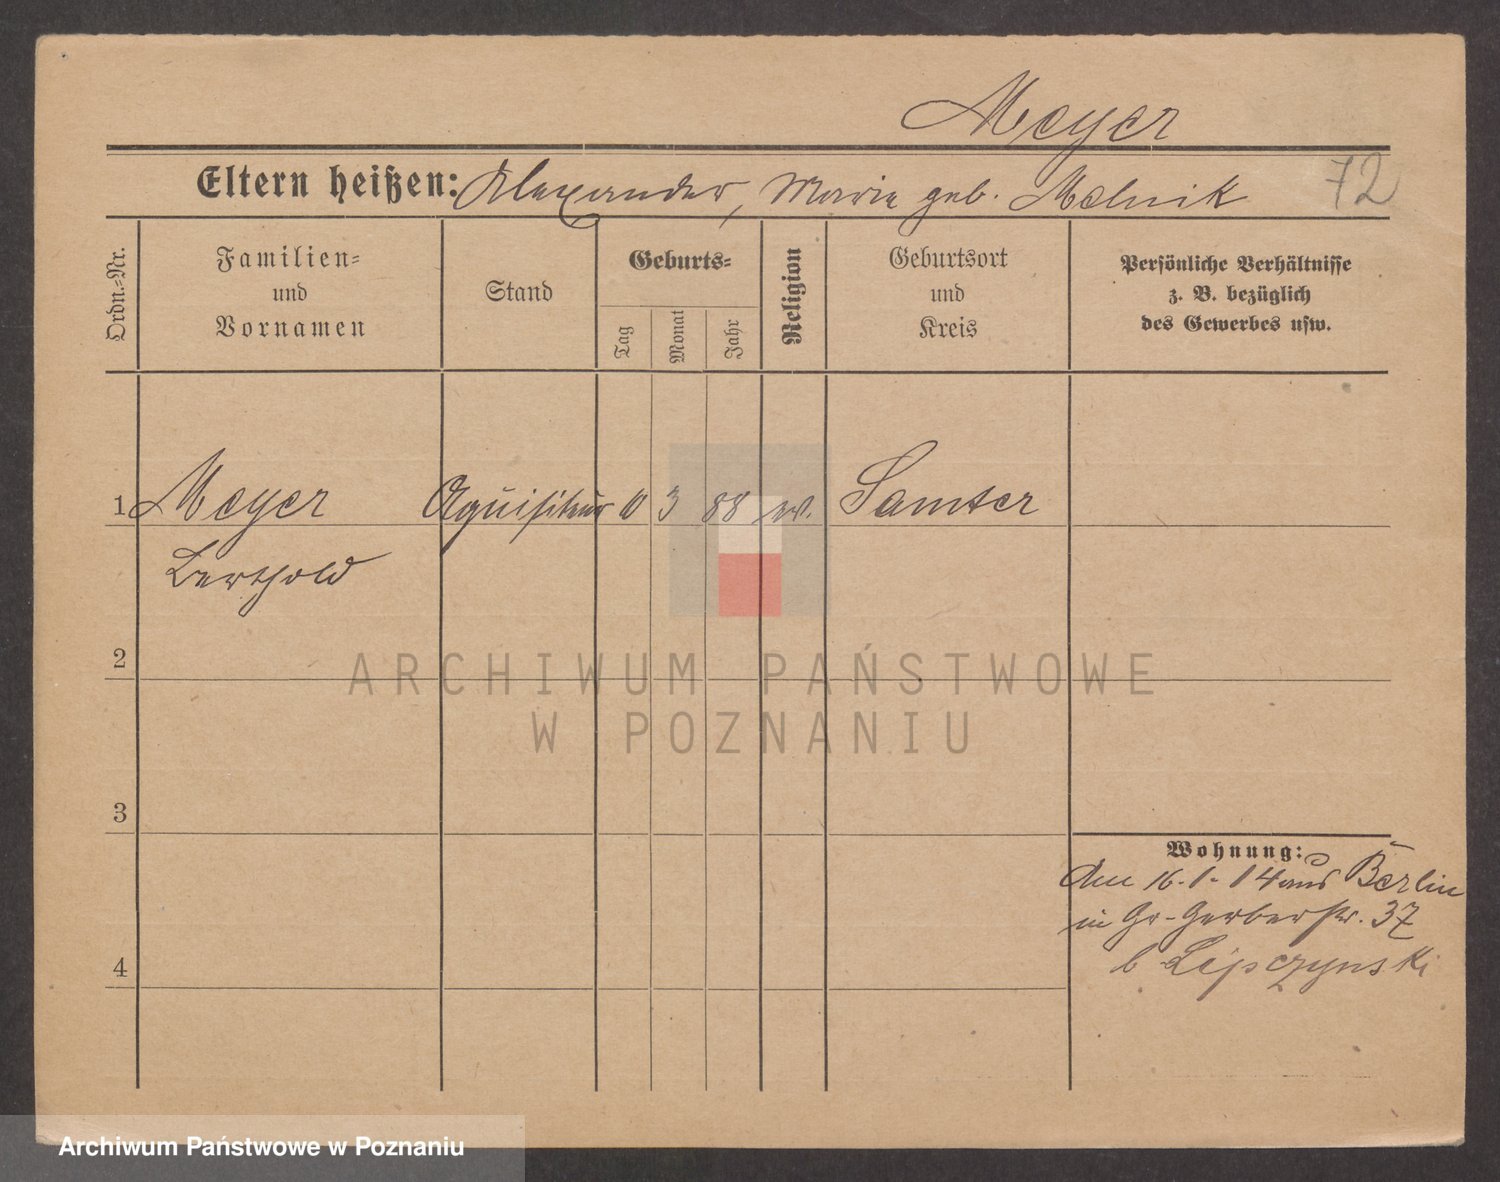 Meyer
Eltern heißen: Alexander, Marie geb. Melnik
72
Ordn.-Nr.
Familien-
und
Vornamen
Stand
Geburts-
Tag
Monat
Jahr
Religion
Geburtsort
und
Kreis
Persönliche Verhältnisse
z. B. bezüglich
des Gewerbes usw.
1 Meyer Aquisiteur 10 3 88 ev. Samter
Berthold
2
ARCHIWUM PAŃSTWOWE
W POZNANIU
3
Wohnung:
Am 16.1.14 aus Berlin
in Gr-Gerberstr. 37
b Lipczynski
4
Archiwum Państwowe w Poznaniu